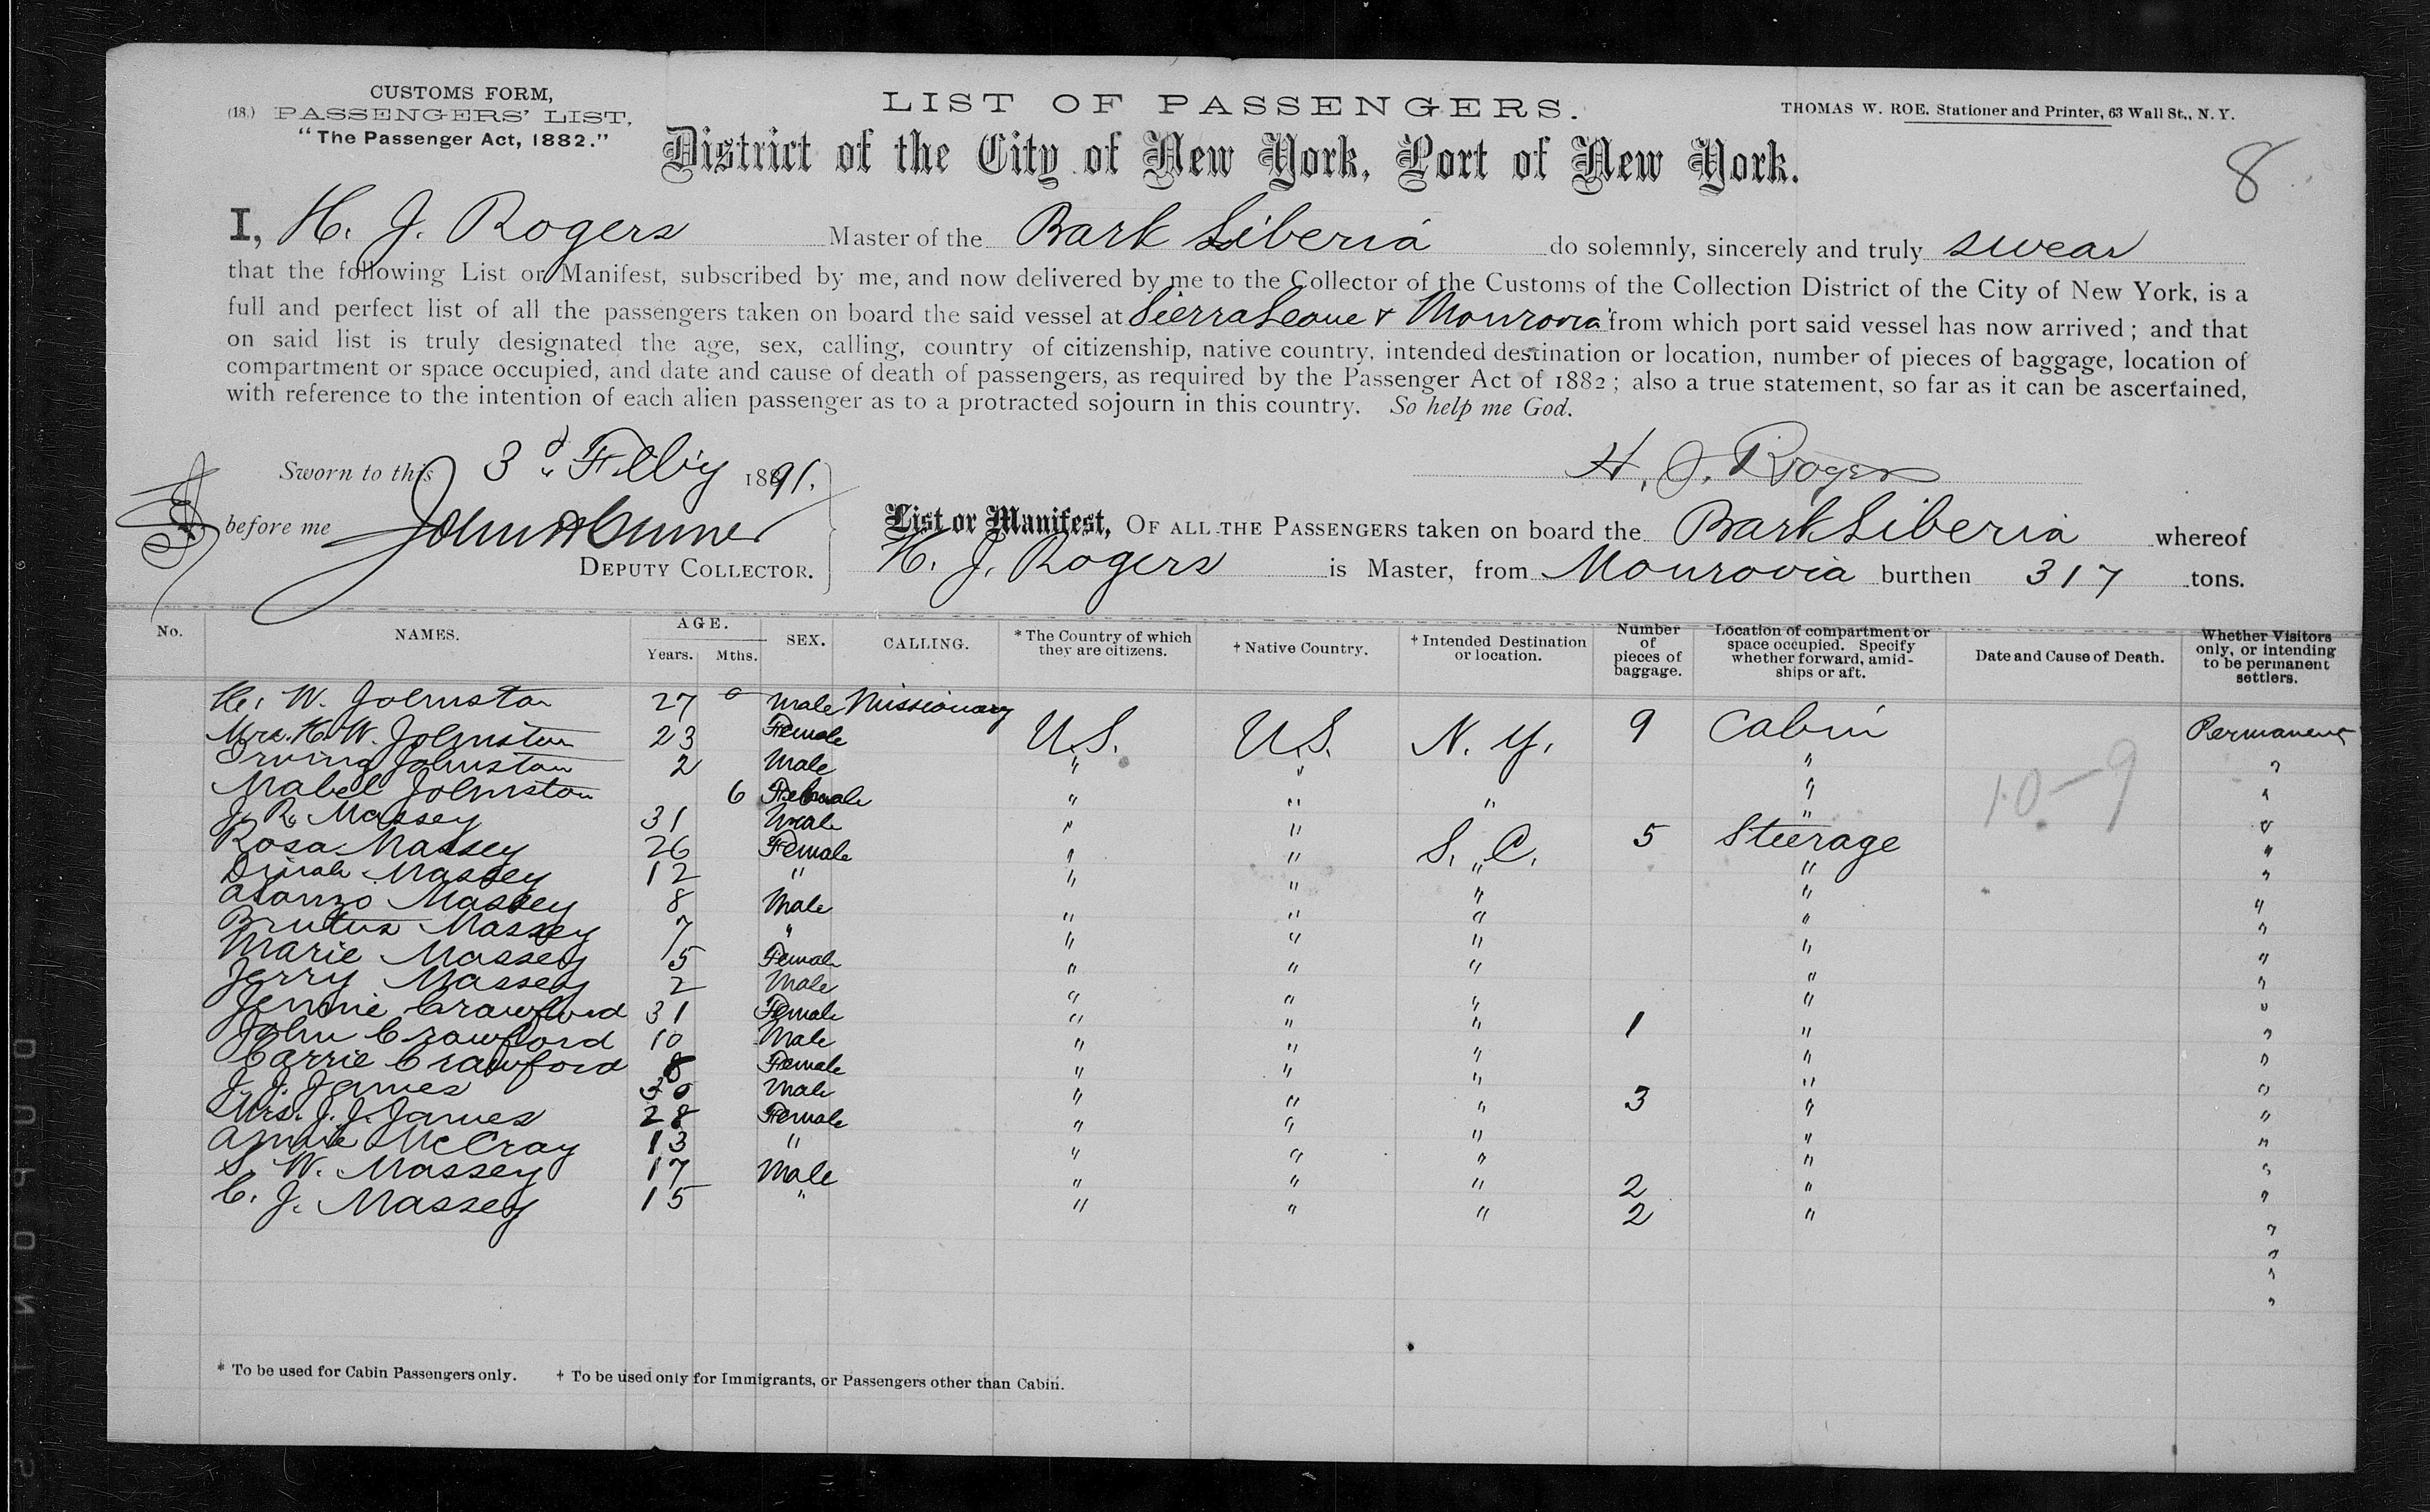 CUSTOMS FORM,
(18.) PASSENGERS' LIST,
"The Passenger Act, 1882."
LIST OF PASSENGERS.
THOMAS W. ROE. Stationer and Printer, 63 Wall St., N. Y.
District of the City of New York, Port of New York.
8
I, H. J. Rogers Master of the Bark Liberia do solemnly, sincerely and truly swear
that the following List or Manifest, subscribed by me, and now delivered by me to the Collector of the Customs of the Collection District of the City of New York, is a
full and perfect list of all the passengers taken on board the said vessel at Sierra Leone & Monrovia from which port said vessel has now arrived; and that
on said list is truly designated the age, sex, calling, country of citizenship, native country, intended destination or location, number of pieces of baggage, location of
compartment or space occupied, and date and cause of death of passengers, as required by the Passenger Act of 1882; also a true statement, so far as it can be ascertained,
with reference to the intention of each alien passenger as to a protracted sojourn in this country. So help me God.
Sworn to this 3d Feb'y 1891.
H. J. Rogers
before me
DEPUTY COLLECTOR.
List or Manifest, OF ALL THE PASSENGERS taken on board the Bark Liberia whereof
H. J. Rogers is Master, from Monrovia burthen 317 tons.
No. NAMES. AGE. Years. Mths. SEX. CALLING. * The Country of which they are citizens. † Native Country. † Intended Destination or location. Number of pieces of baggage. Location of compartment or space occupied. Specify whether forward, amidships or aft. Date and Cause of Death. Whether Visitors only, or intending to be permanent settlers.
H. W. Johnston 27 0 Male Missionary U.S. U.S. N. Y. 9 Cabin Permanent
Mrs. H. W. Johnston 23 Female " " " "
Irving Johnston 2 Male " " " " "
Mabel Johnston 6 Female " " " "
J. R. Massey 31 Male " " S. C. 5 Steerage "
Rosa Massey 26 Female " " " " "
Dinah Massey 12 " " " " " "
Alonzo Massey 8 Male " " " " "
Brutus Massey 7 " " " " " "
Marie Massey 5 Female " " " " "
Jerry Massey 2 Male " " " " "
Jennie Crawford 31 Female " " " 1 " "
John Crawford 10 Male " " " " "
Carrie Crawford 8 Female " " " " "
J. J. James 30 Male " " " 3 " "
Mrs. J. J. James 28 Female " " " " "
Annie McCray 13 " " " " " "
S. W. Massey 17 Male " " " 2 " "
C. J. Massey 15 " " " " 2 " "
10-9
* To be used for Cabin Passengers only. † To be used only for Immigrants, or Passengers other than Cabin.